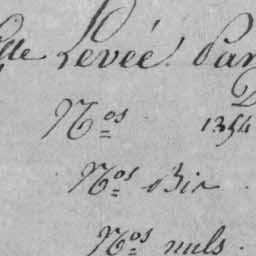 tte Levée. Par
N.os 1354
N.os Bis
N.os nuls.